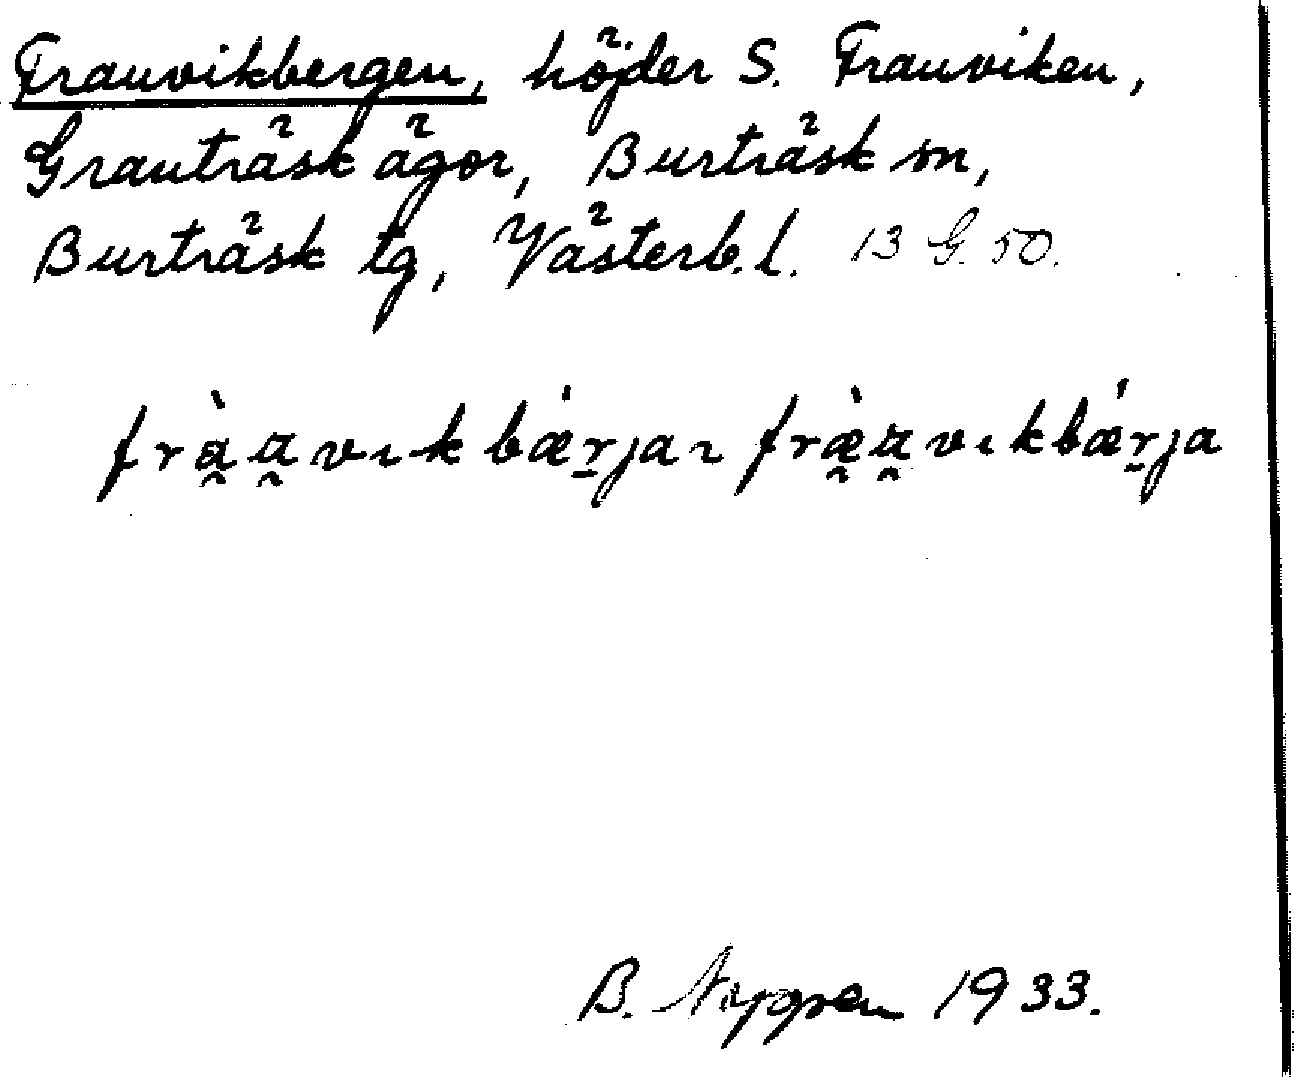 Frauvikbergen, höjder S. Frauviken,
Grauträsk ägor, Burträsk sn,
Burträsk tg, Västerb.l. 13 G. 50.
frà̯a̯vɩkbǽr̠jaɿ fræ̯̀a̯vɩkbǽr̠ja
B. Nygren 1933.